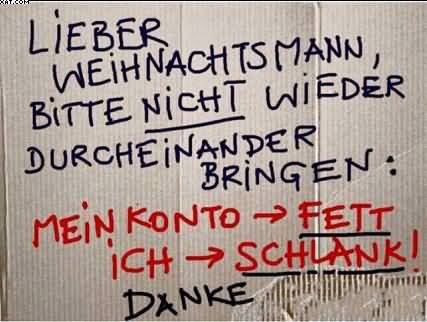 XAT.COM
LIEBER
WEIHNACHTSMANN,
BITTE NICHT WIEDER
DURCHEINANDER
BRINGEN:
MEIN KONTO → FETT
ICH → SCHLANK!
DANKE